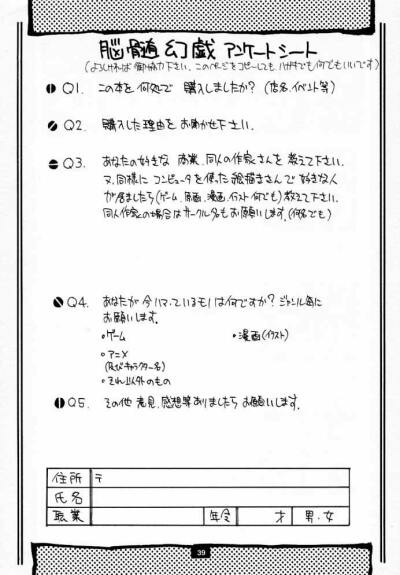 脳髄幻戯 アンケートシート
(よろしければ御協力下さい。このページをコピーしても、ハガキでも何でもいいです)
Q1. この本を何処で購入しましたか?(店名、イベント等)
Q2. 購入した理由をお聞かせ下さい.
Q3. あなたの好きな 商業、同人の作家さんを教えて下さい.
又、同様に コンピュータを使った絵描きさんで好きな人
が居ましたら(ゲーム、原画、漫画、イラスト何でも)教えて下さい.
同人作家の場合はサークル名もお願いします.(何名でも)
Q4. あなたが今ハマっているモノは何ですか?ジャンル毎に
お願いします.
・ゲーム
・漫画(イラスト)
・アニメ
(及びキャラクター名)
・それ以外のもの
Q5. その他 意見、感想等ありましたらお願いします.
住所 〒
氏名
職業 年令 才 男・女
39